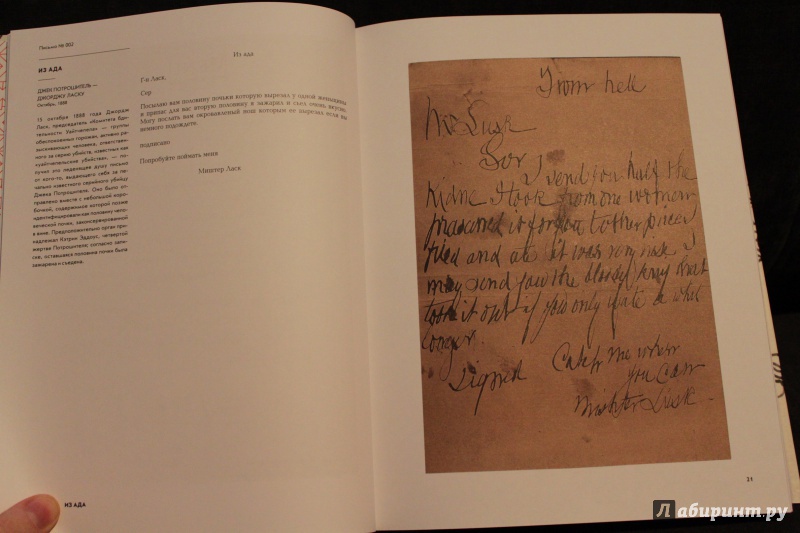 Письмо № 002
ИЗ АДА
ДЖЕК ПОТРОШИТЕЛЬ —
ДЖОРДЖУ ЛАСКУ
Октябрь, 1888
15 октября 1888 года Джордж
Ласк, председатель «Комитета бди-
тельности Уайтчепела» — группы
обеспокоенных горожан, активно ра-
зыскивающих человека, ответственно-
го за серию убийств, известных как
«уайтчепельские убийства», — по-
лучил это леденящее душу письмо
от кого-то, выдающего себя за пе-
чально известного серийного убийцу
Джека Потрошителя. Оно было от-
правлено вместе с небольшой коро-
бочкой, содержимое которой позже
идентифицировали как половину чело-
веческой почки, законсервированной
в вине. Предположительно орган при-
надлежал Кэтрин Эддоус, четвертой
жертве Потрошителя; согласно запи-
ске, оставшаяся половина почки была
зажарена и съедена.
Из ада
Г-н Ласк,
Сэр
Посылаю вам половину почьки которую вырезал у одной женьщины
и припас для вас вторую половинку я зажарил и съел очень вкусно.
Могу послать вам окровавленый нош которым ее вырезал если вы
немного подождете.
подписано
Попробуйте поймать меня
Миштер Ласк
ИЗ АДА
From hell
Mr Lusk
Sor
I send you half the
Kidne I took from one women
prasarved it for you tother piece I
fried and ate it was very nise I
may send you the bloody knif that
took it out if you only wate a whil
longer.
Signed
Catch me when
you Can
Mishter Lusk.
31
Лабиринт.ру